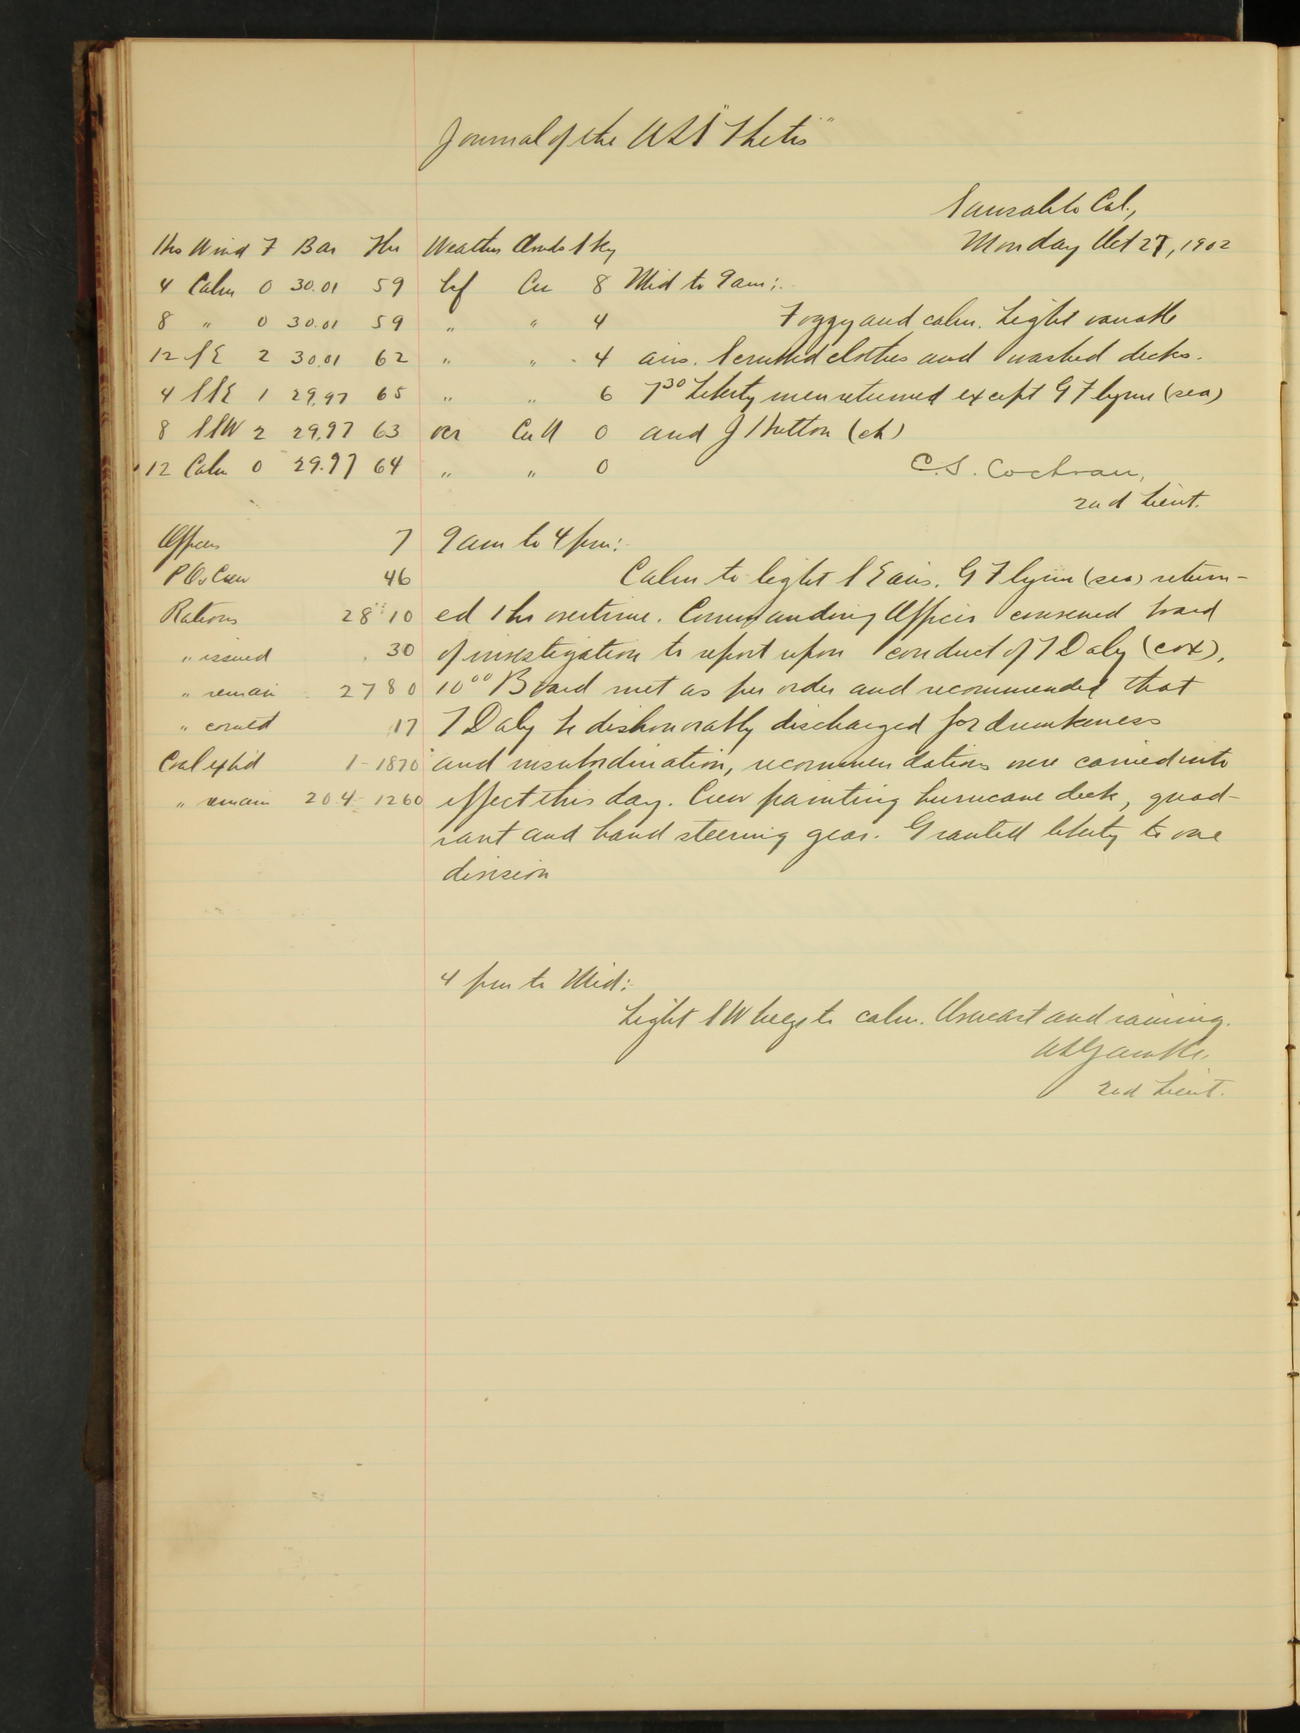 Journal of the USS "Thetis"
Sausalito Cal.,
Monday Oct 27, 1902
Hrs Wind F Bar Thr Weather Clouds Sky
4 Calm 0 30.01 59 bf Cu 8 Mid to 9 am:
8 " 0 30.01 59 " " 4 Foggy and calm. Light variable
12 SE 2 30.01 62 " " 4 airs. Scrubbed clothes and washed decks.
4 SSE 1 29.97 65 " " 6 7³⁰ Liberty men returned except G Flynn (sea)
8 SSW 2 29.97 63 ocr Cu N 0 and J Hutton (ck)
12 Calm 0 29.97 64 " " 0 C. S. Cochran,
2nd Lieut.
Officers 7 9 am to 4 pm:
P Os Crew 46 Calm to light S E airs. G Flynn (sea) return-
Rations 28 10 ed 1 hr overtime. Commanding Officer convened board
" issued 30 of investigation to report upon conduct of F Daly (cox).
" remain 2780 10⁰⁰ Board met as per order and recommended that
" comtd 17 F Daly be dishonorably discharged for drunkeness
Coal exp'd 1-1870 and insubordination, recommendations were carried into
" remain 204-1260 effect this day. Crew painting hurricane deck, quad-
rant and hand steering gear. Granted liberty to one
division
4 pm to Mid:
Light SW breeze to calm. Overcast and raining.
2nd Lieut.